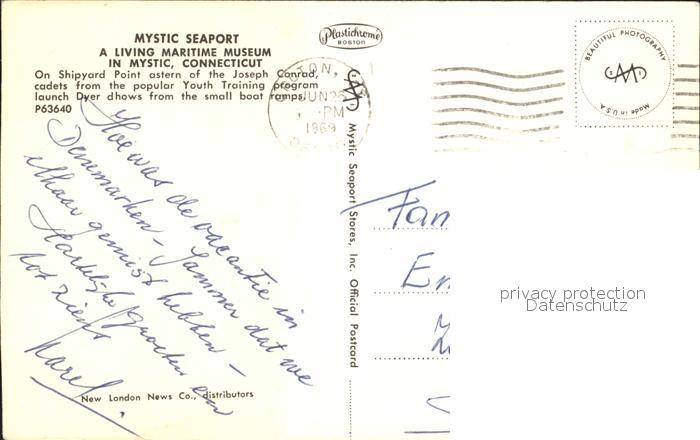 MYSTIC SEAPORT
A LIVING MARITIME MUSEUM
IN MYSTIC, CONNECTICUT
On Shipyard Point astern of the Joseph Conrad,
cadets from the popular Youth Training program
launch Dyer dhows from the small boat ramps.
P63640
Plastichrome
BOSTON
TON,
JUN 2
PM
1969
BEAUTIFUL PHOTOGRAPHY
Made in U.S.A.
Mystic Seaport Stores, Inc. Official Postcard
Hoe was de vacantie in
Denemarken - Jammer dat we
elkaar gemist hebben -
Hartelijke groeten en
tot ziens
Karel.
Fam
En
privacy protection
Datenschutz
New London News Co., distributors